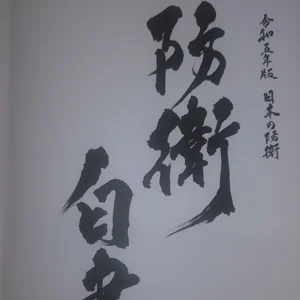 令和五年版 日本の防衛
防衛
白書